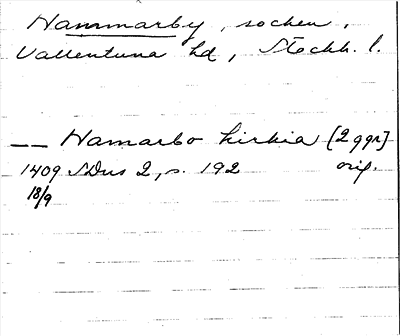 Hammarby, socken,
Vallentuna hd, Stockh. l.
__ Hamarbo kirkia [2 ggr]
1409 SDns 2, s. 192 orig.
18/9